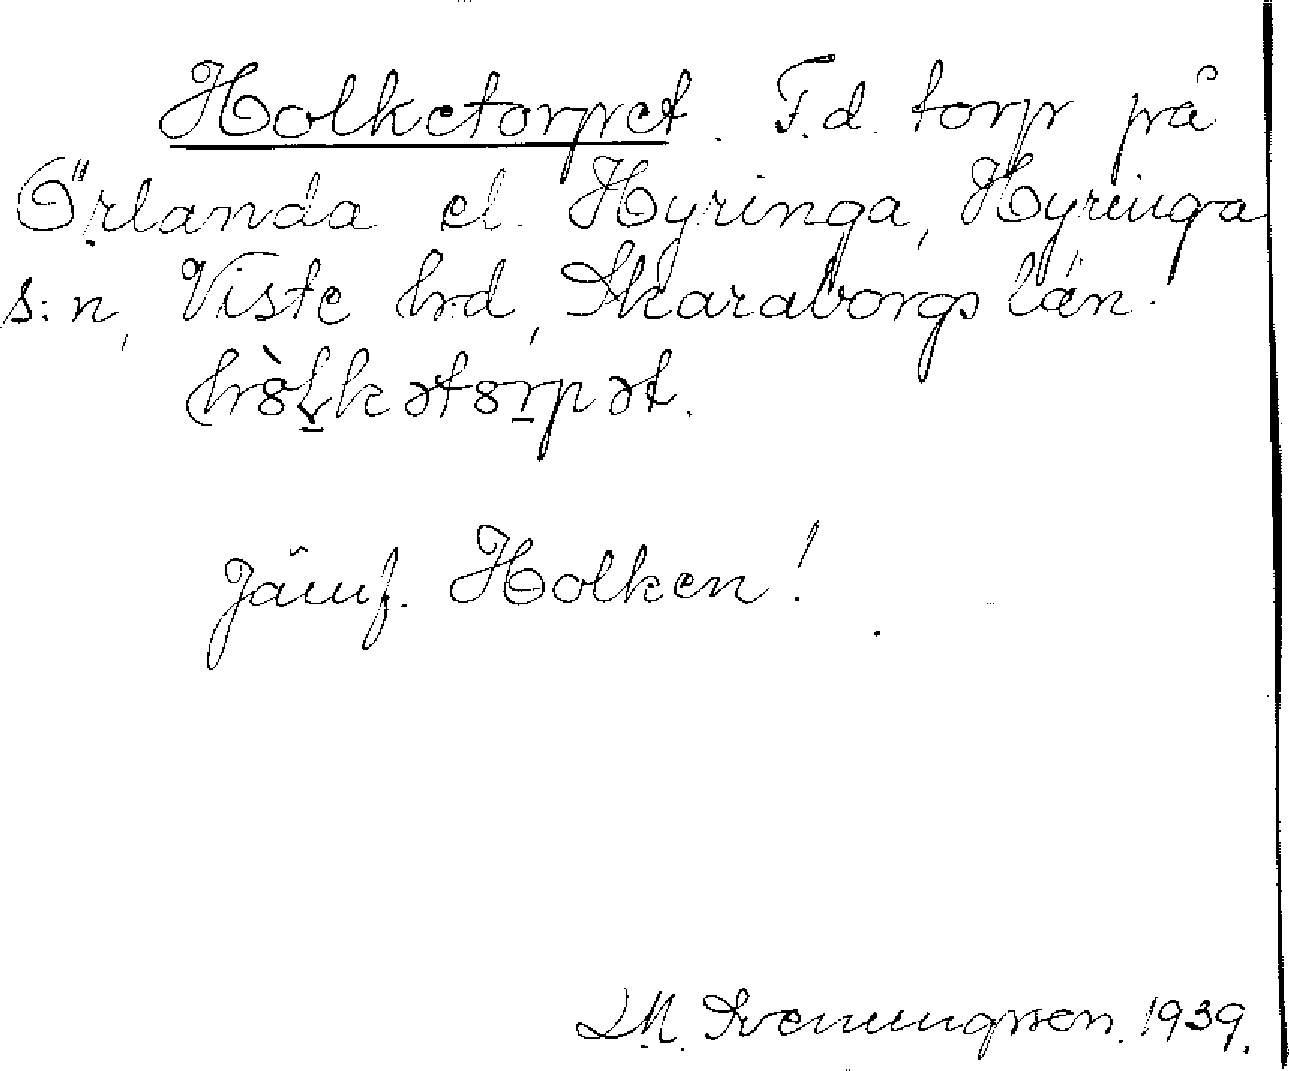 Holketorpet. F.d. torp på
Örlanda el. Hyringa, Hyringa
s:n, Viste hrd, Skaraborgs län.
hòḻkətorpət.
Jämf. Holken!
Svenungsson. 1939.